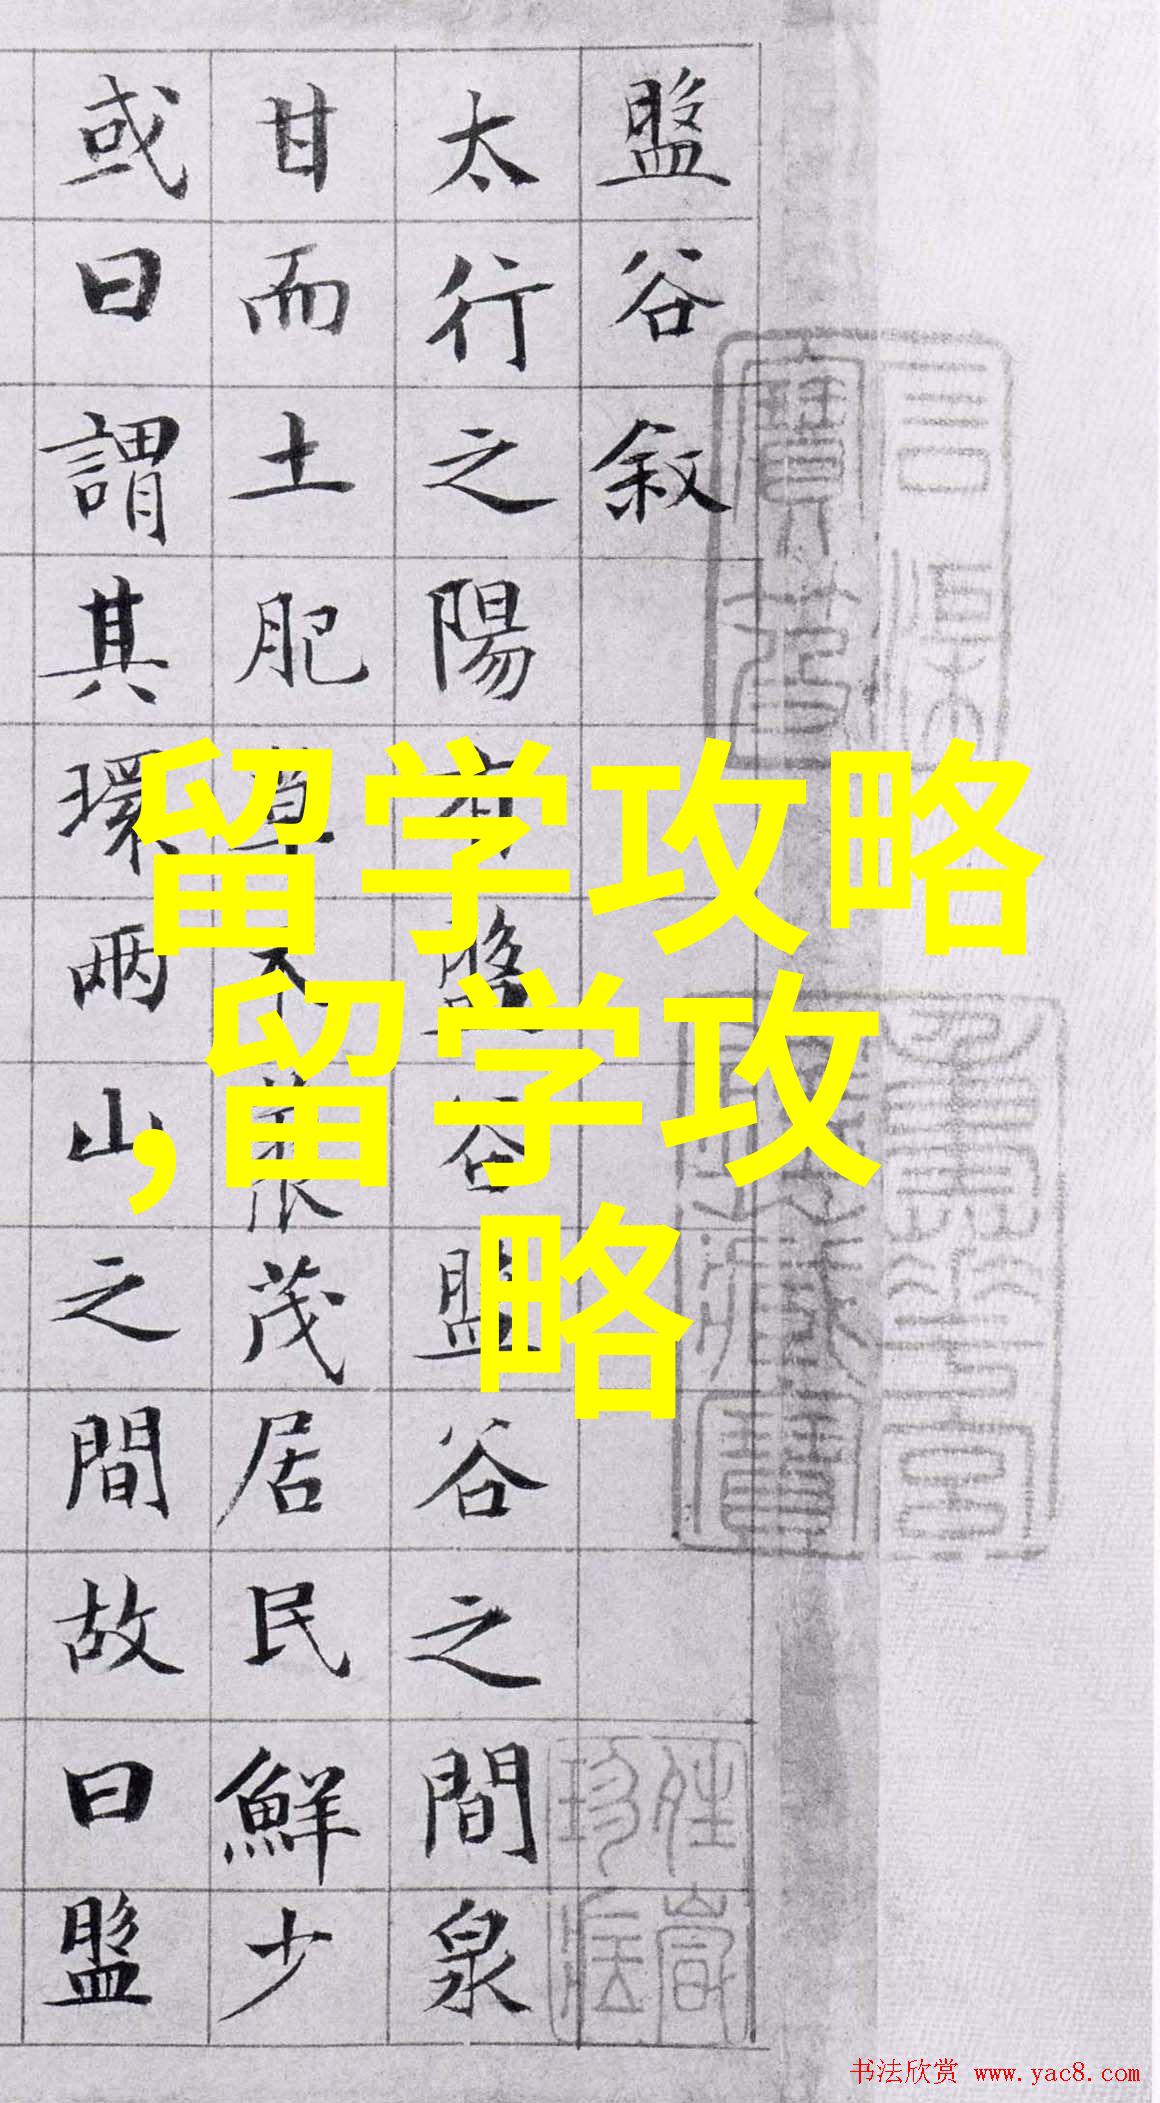 盤谷敘
太行之陽有盤谷盤谷之間泉
甘而土肥草木藂茂居民鮮少
或曰謂其環兩山之間故曰盤
留学攻略
,留学攻
略
书法欣赏 www.yac8.com